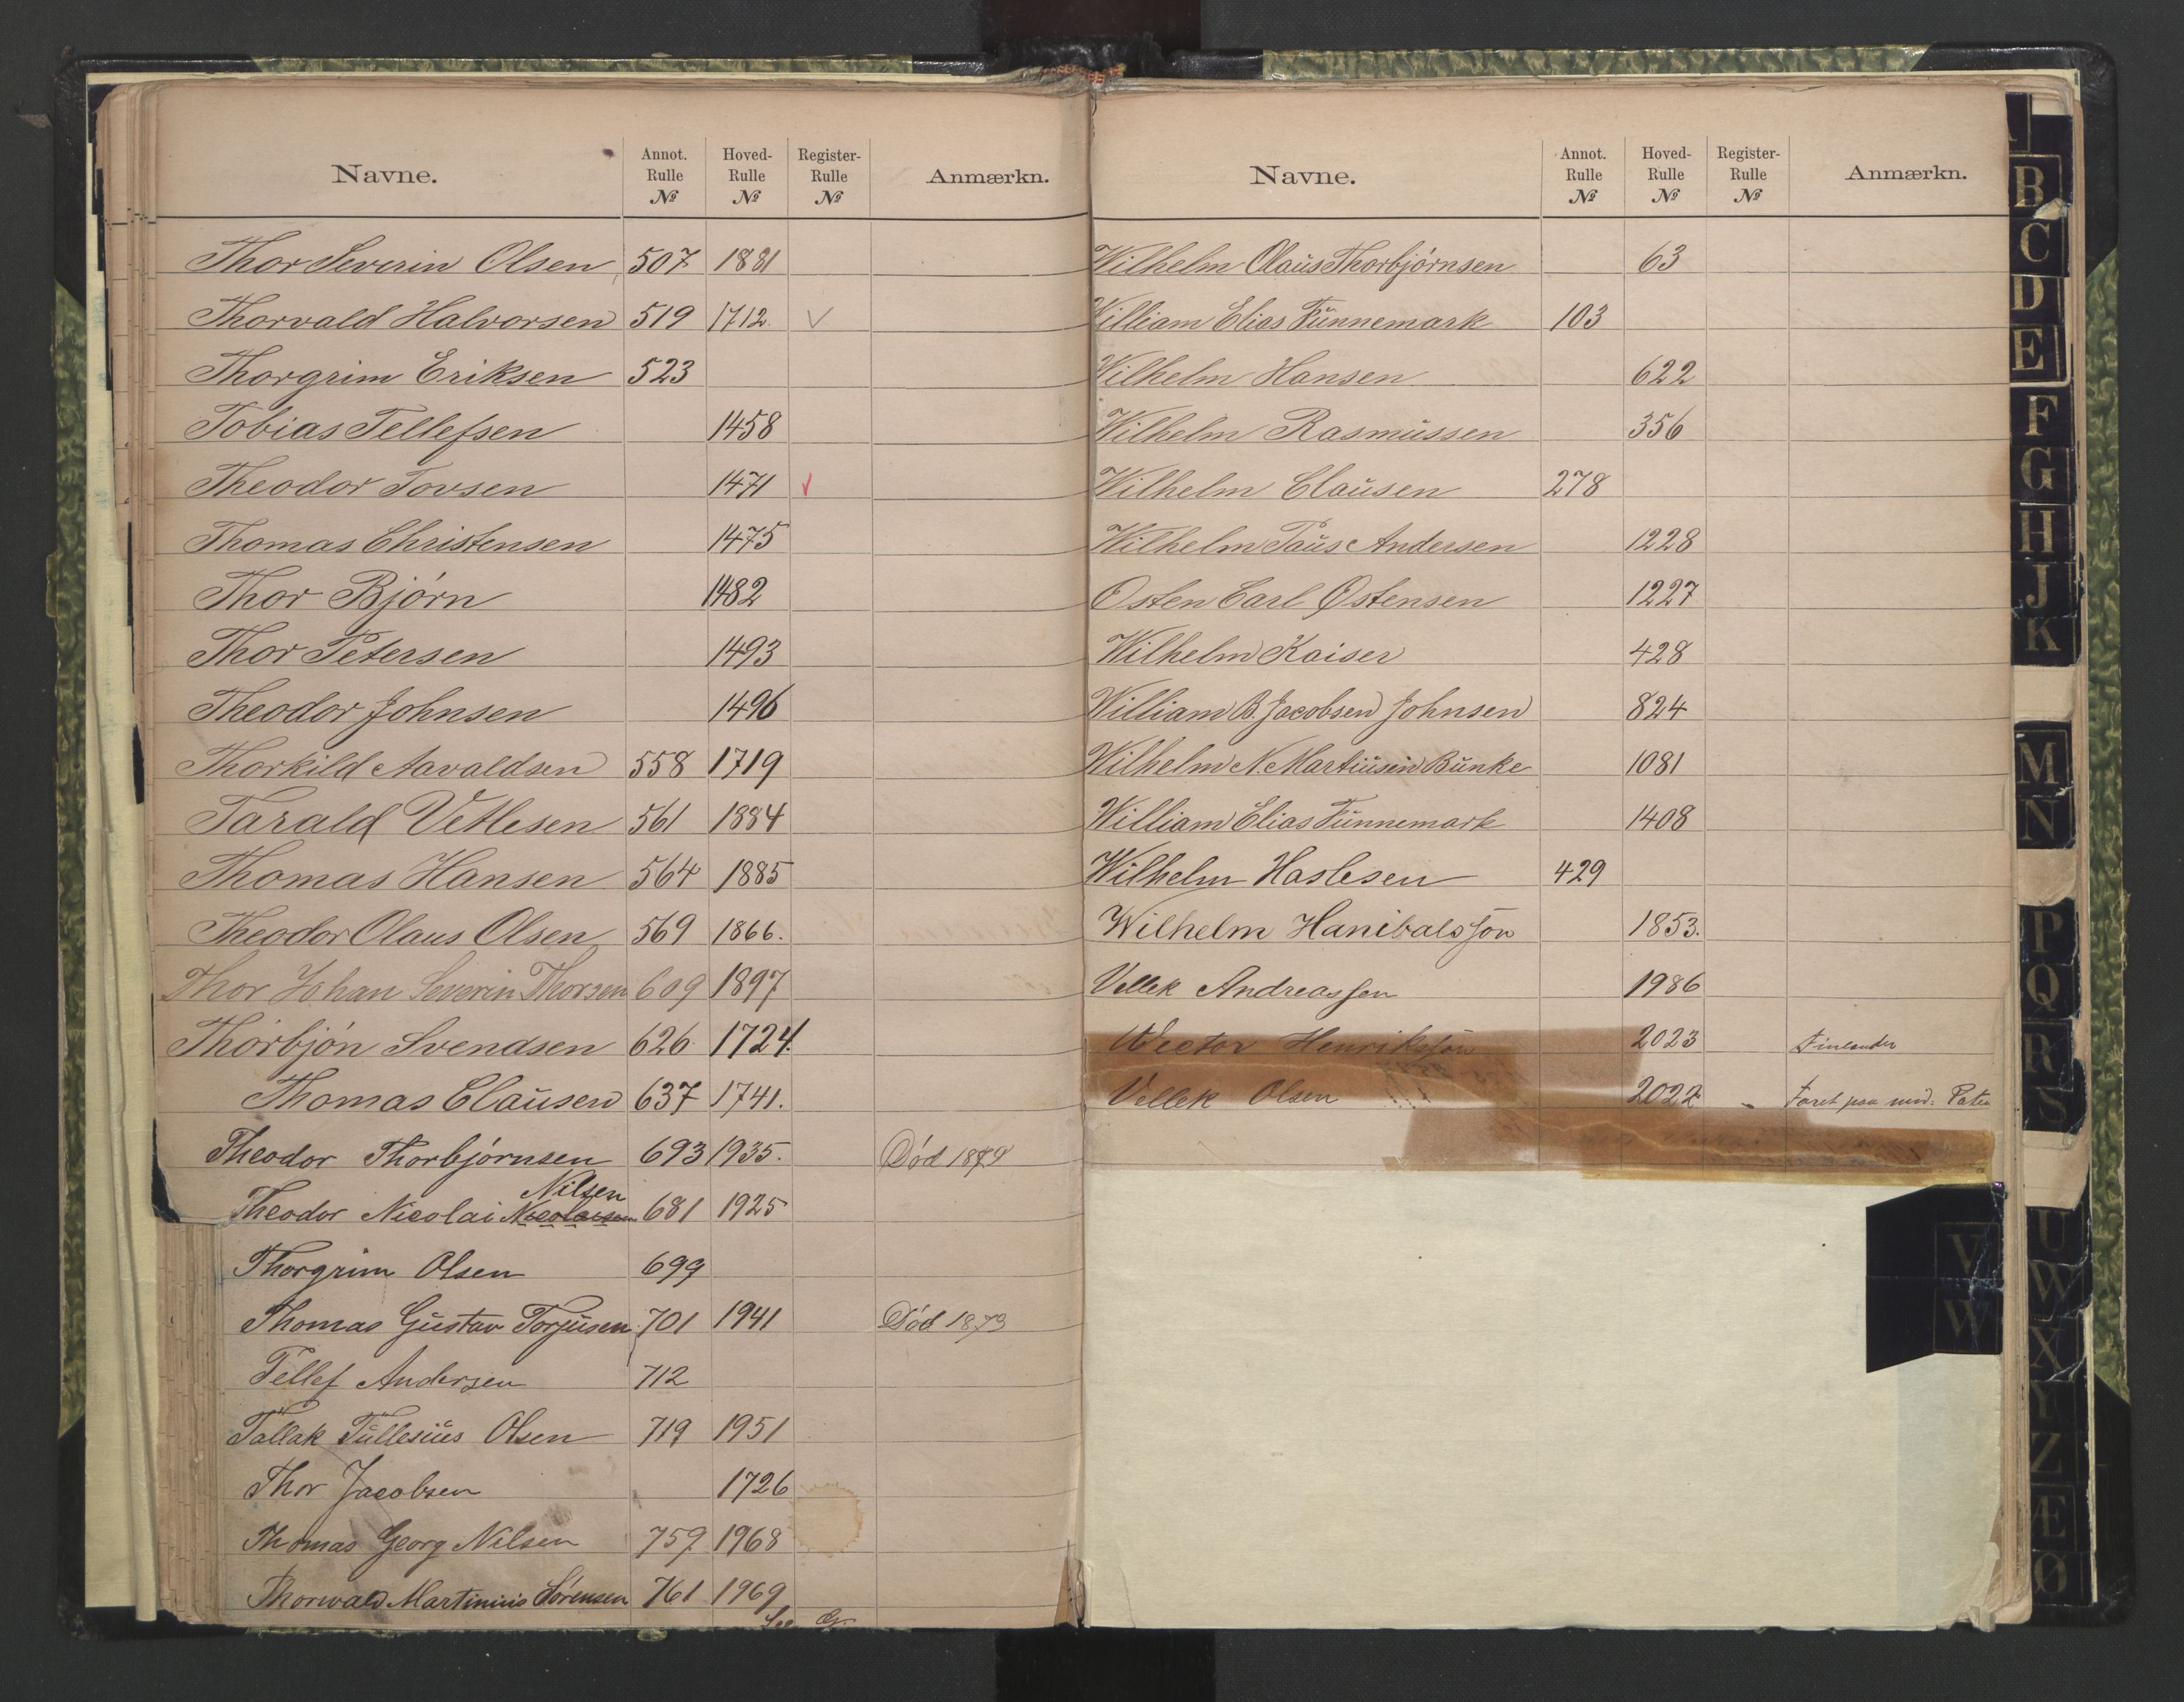 Navne. Annot. Rulle № Hoved-Rulle № Register-Rulle № Anmærkn.
Thor Severin Olsen 507 1881
Thorvald Halvorsen 519 1712. √
Thorgrim Eriksen 523
Tobias Tellefsen 1458
Theodor Tovsen 1471 √
Thomas Christensen 1475
Thor Bjørn 1482
Thor Petersen 1493
Theodor Johnsen 1496
Thorkild Aavaldsen 558 1719
Tarald Vetlesen 561 1884
Thomas Hansen 564 1885
Theodor Olaus Olsen 569 1866.
Thor Johan Severin Thorsen 609 1897
Thorbjón Svendsen 626 1724.
Thomas Clausen 637 1741.
Theodor Thorbjørnsen 693 1935. Død 1879
Nilsen
Theodor Nicolai Nicolaisen 681 1925
Thorgrim Olsen 699
Thomas Gustav Torjusen 701 1941 Død 1873
Tellef Andersen 712
Tallak Tüllesius Olsen 719 1951
Thor Jacobsen 1726
Thomas Georg Nilsen 759 1968
Thorwald Martinius Sørensen 761 1969
See G.
Navne. Annot. Rulle № Hoved-Rulle № Register-Rulle № Anmærkn.
Wilhelm Olaus Thorbjørnsen 63
William Elias Funnemark 103
Wilhelm Hansen 622
Wilhelm Rasmussen 356
Wilhelm Clausen 278
Wilhelm Paus Andersen 1228
Osten Carl Østensen 1227
Wilhelm Kaiser 428
William B. Jacobsen Johnsen 824
Wilhelm N. Martiusen Bunke 1081
William Elias Funnemark 1408
Wilhelm Haslesen 429
Wilhelm Hanibalssøn 1853.
Vellek Andreassen 1986
Wector Henrikssøn 2023 Finlænder
Vellek Olsen 2022 Faret paa
B
C
D
E
F
G
H
J
K
M
N
P
Q
R
S
U
V
W
W
X
Y
Z
Æ
Ø